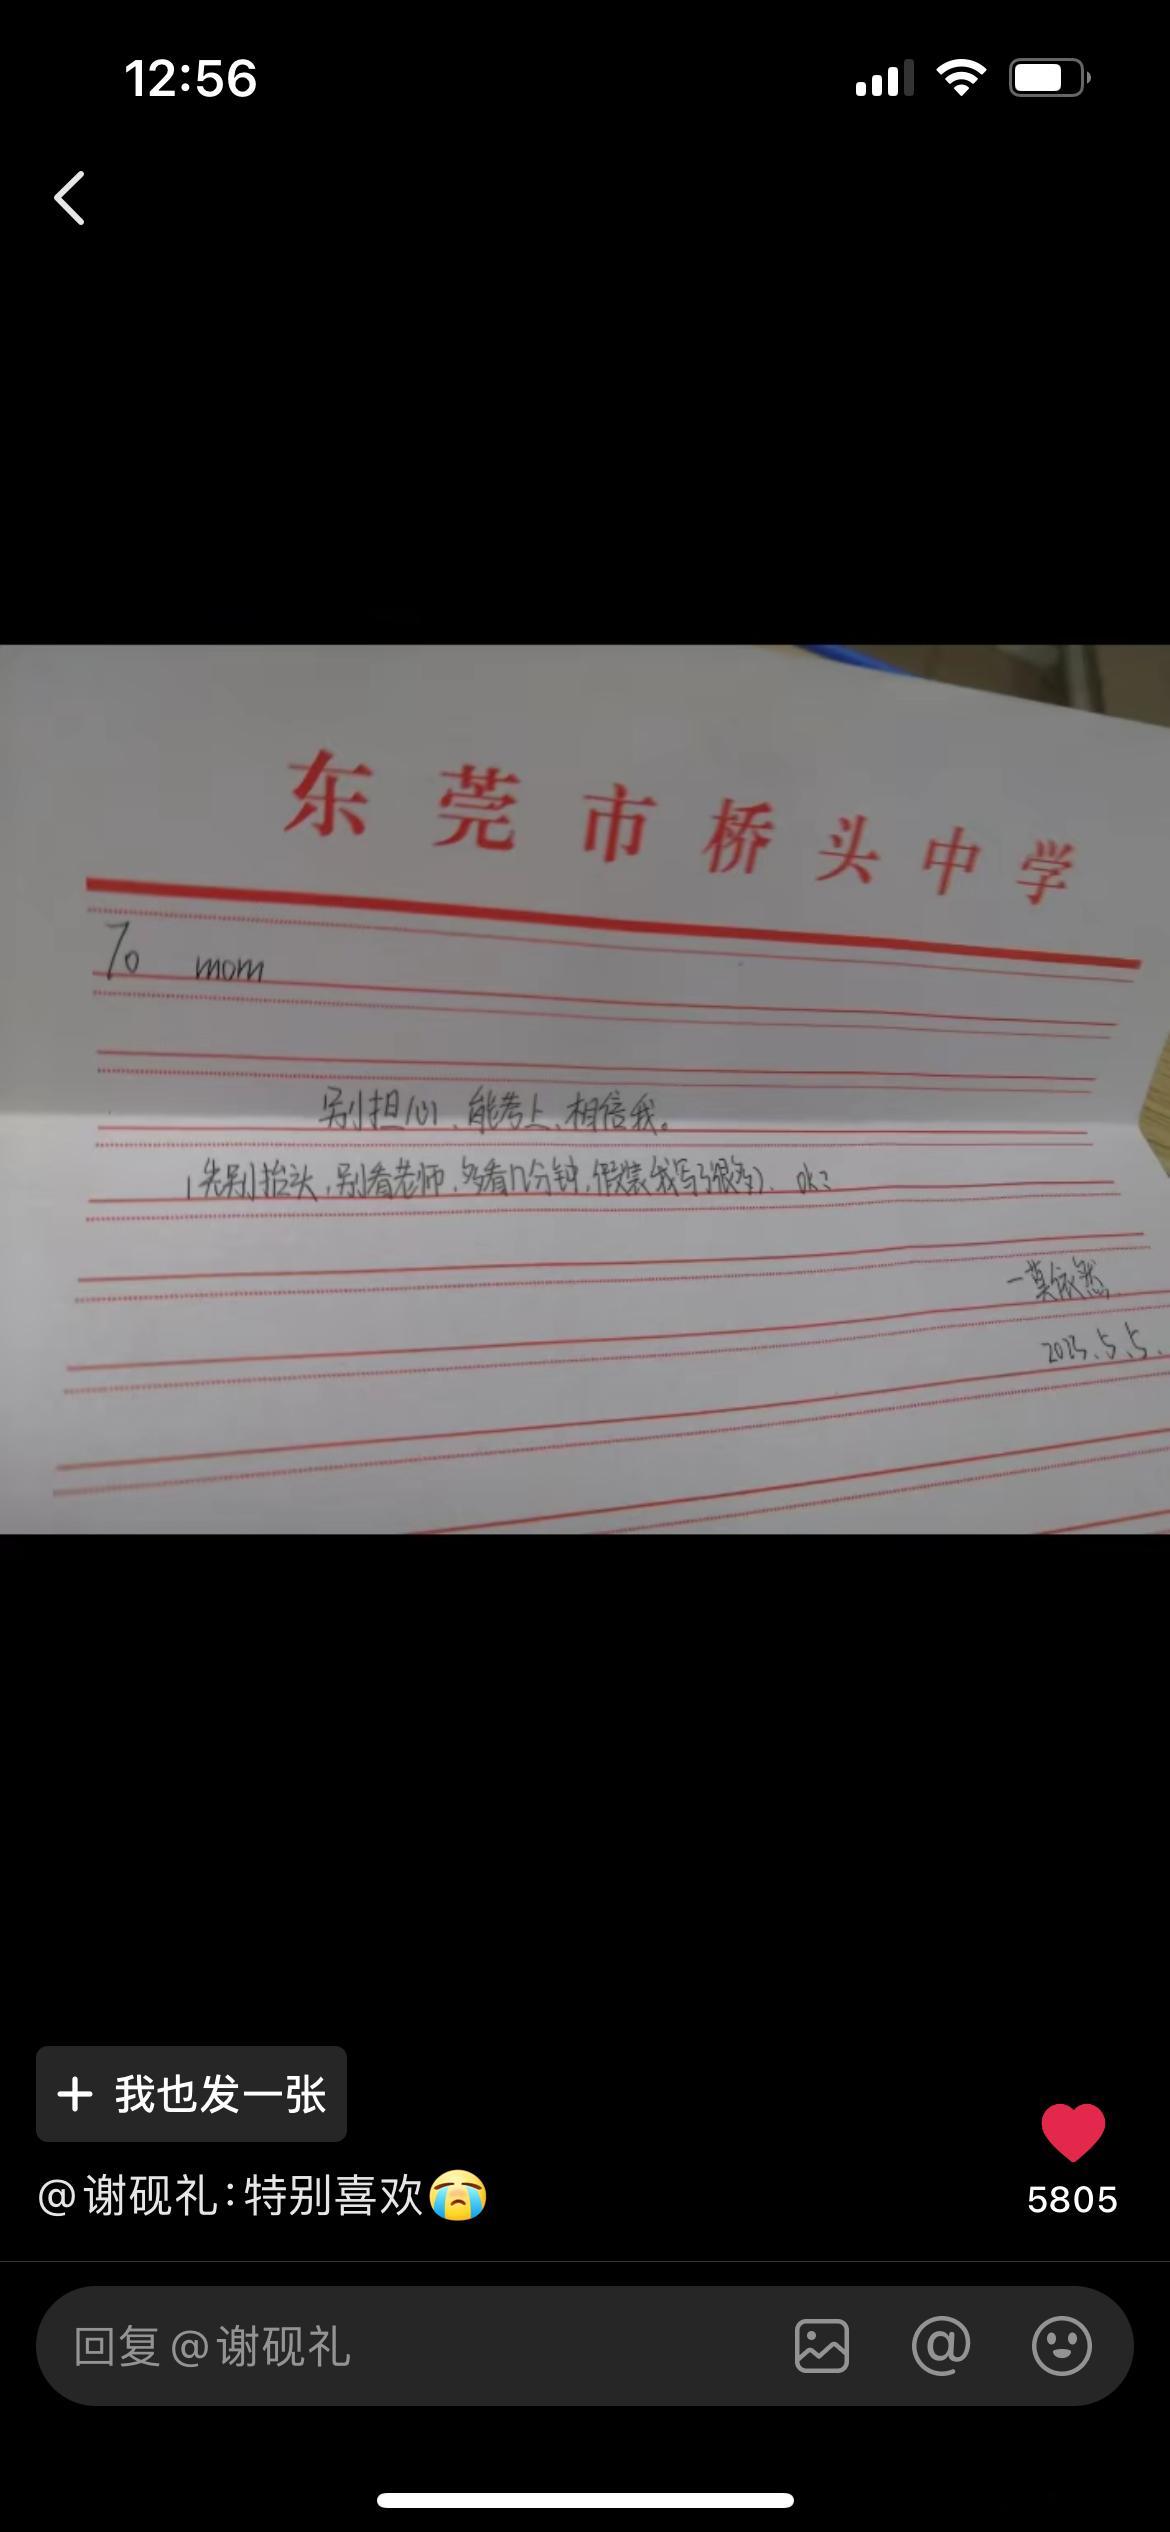 12:56
东莞市桥头中学
To mom
别担心、能考上、相信我。
(先别抬头,别看老师.多看几分钟,假装我写了很多)、ok?
—莫依然
2023.5.5.
我也发一张
@谢砚礼:特别喜欢😭
5805
回复 @谢砚礼